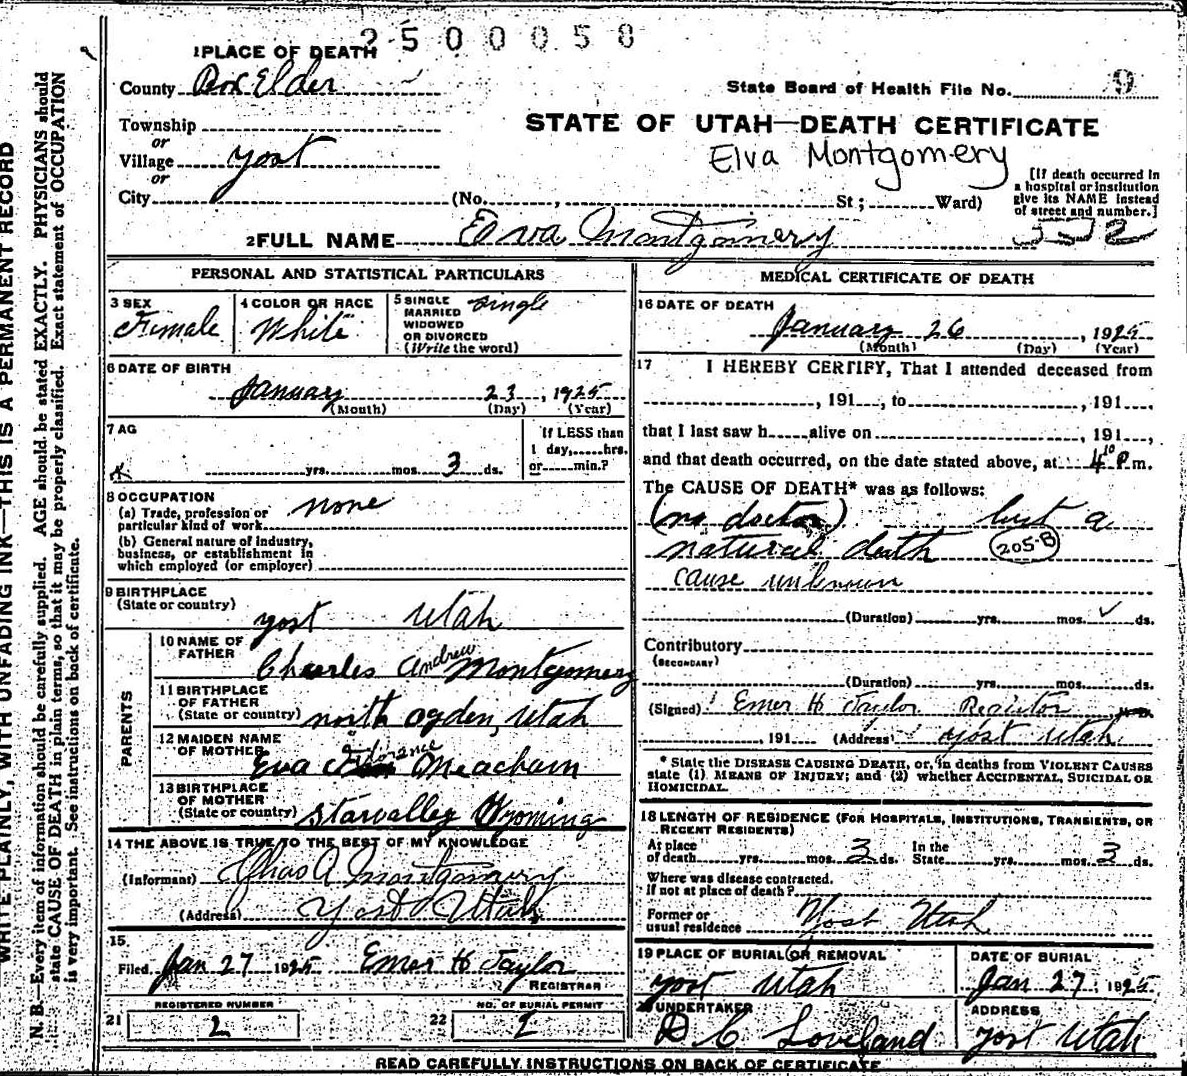 WRITE PLAINLY, WITH UNFADING INK—THIS IS A PERMANENT RECORD
N. B. Every item of information should be carefully supplied. AGE should be stated EXACTLY. PHYSICIANS should
state CAUSE OF DEATH in plain terms, so that it may be properly classified. Exact statement of OCCUPATION
is very important. See instructions on back of certificate.
2500058
1 PLACE OF DEATH
County Box Elder
State Board of Health File No. 9
Township
or
Village Yost
or
City
STATE OF UTAH—DEATH CERTIFICATE
Elva Montgomery
(No. , St ; Ward)
[If death occurred in
a hospital or institution
give its NAME instead
of street and number.]
2 FULL NAME Elva Montgomery
PERSONAL AND STATISTICAL PARTICULARS
3 SEX
Female
4 COLOR OR RACE
White
5 SINGLE
MARRIED
WIDOWED
OR DIVORCED
(Write the word)
single
6 DATE OF BIRTH
January 23, 1925
(Month) (Day) (Year)
7 AG
yrs. mos. 3 ds.
If LESS than
1 day, hrs.
or min.?
8 OCCUPATION
(a) Trade, profession or
particular kind of work
none
(b) General nature of industry,
business, or establishment in
which employed (or employer)
9 BIRTHPLACE
(State or country)
Yost Utah
PARENTS
10 NAME OF
FATHER
Charles Andrew Montgomery
11 BIRTHPLACE
OF FATHER
(State or country) North Ogden, Utah
12 MAIDEN NAME
OF MOTHER
Eva Meacham
13 BIRTHPLACE
OF MOTHER
(State or country) Starvalley Wyoming
14 THE ABOVE IS TRUE TO THE BEST OF MY KNOWLEDGE
(Informant) Chas A Montgomery
(Address) Yost Utah
15
Filed Jan 27 1925 Emer H Taylor
REGISTRAR
REGISTERED NUMBER
21 2
NO. OF BURIAL PERMIT
22 2
MEDICAL CERTIFICATE OF DEATH
16 DATE OF DEATH
January 26, 1925
(Month) (Day) (Year)
17 I HEREBY CERTIFY, That I attended deceased from
, 191 , to , 191 ,
that I last saw h alive on , 191 ,
and that death occurred, on the date stated above, at 4 10 P m.
The CAUSE OF DEATH* was as follows:
(no doctor) but a
natural death 205-B
cause unknown
(Duration) yrs. mos. ds.
Contributory
(SECONDARY)
(Duration) yrs. mos. ds.
(Signed) Emer H Taylor
191 (Address) Yost Utah
* State the DISEASE CAUSING DEATH, or, in deaths from VIOLENT CAUSES
state (1) MEANS OF INJURY; and (2) whether ACCIDENTAL, SUICIDAL OR
HOMICIDAL.
18 LENGTH OF RESIDENCE (FOR HOSPITALS, INSTITUTIONS, TRANSIENTS, OR
RECENT RESIDENTS)
At place
of death yrs. mos. 3 ds.
In the
State yrs. mos. 3 ds.
Where was disease contracted.
if not at place of death?
Former or
usual residence Yost Utah
19 PLACE OF BURIAL OR REMOVAL
Yost Utah
DATE OF BURIAL
Jan 27, 1925
UNDERTAKER
D C Loveland
ADDRESS
Yost Utah
READ CAREFULLY INSTRUCTIONS ON BACK OF CERTIFICATE